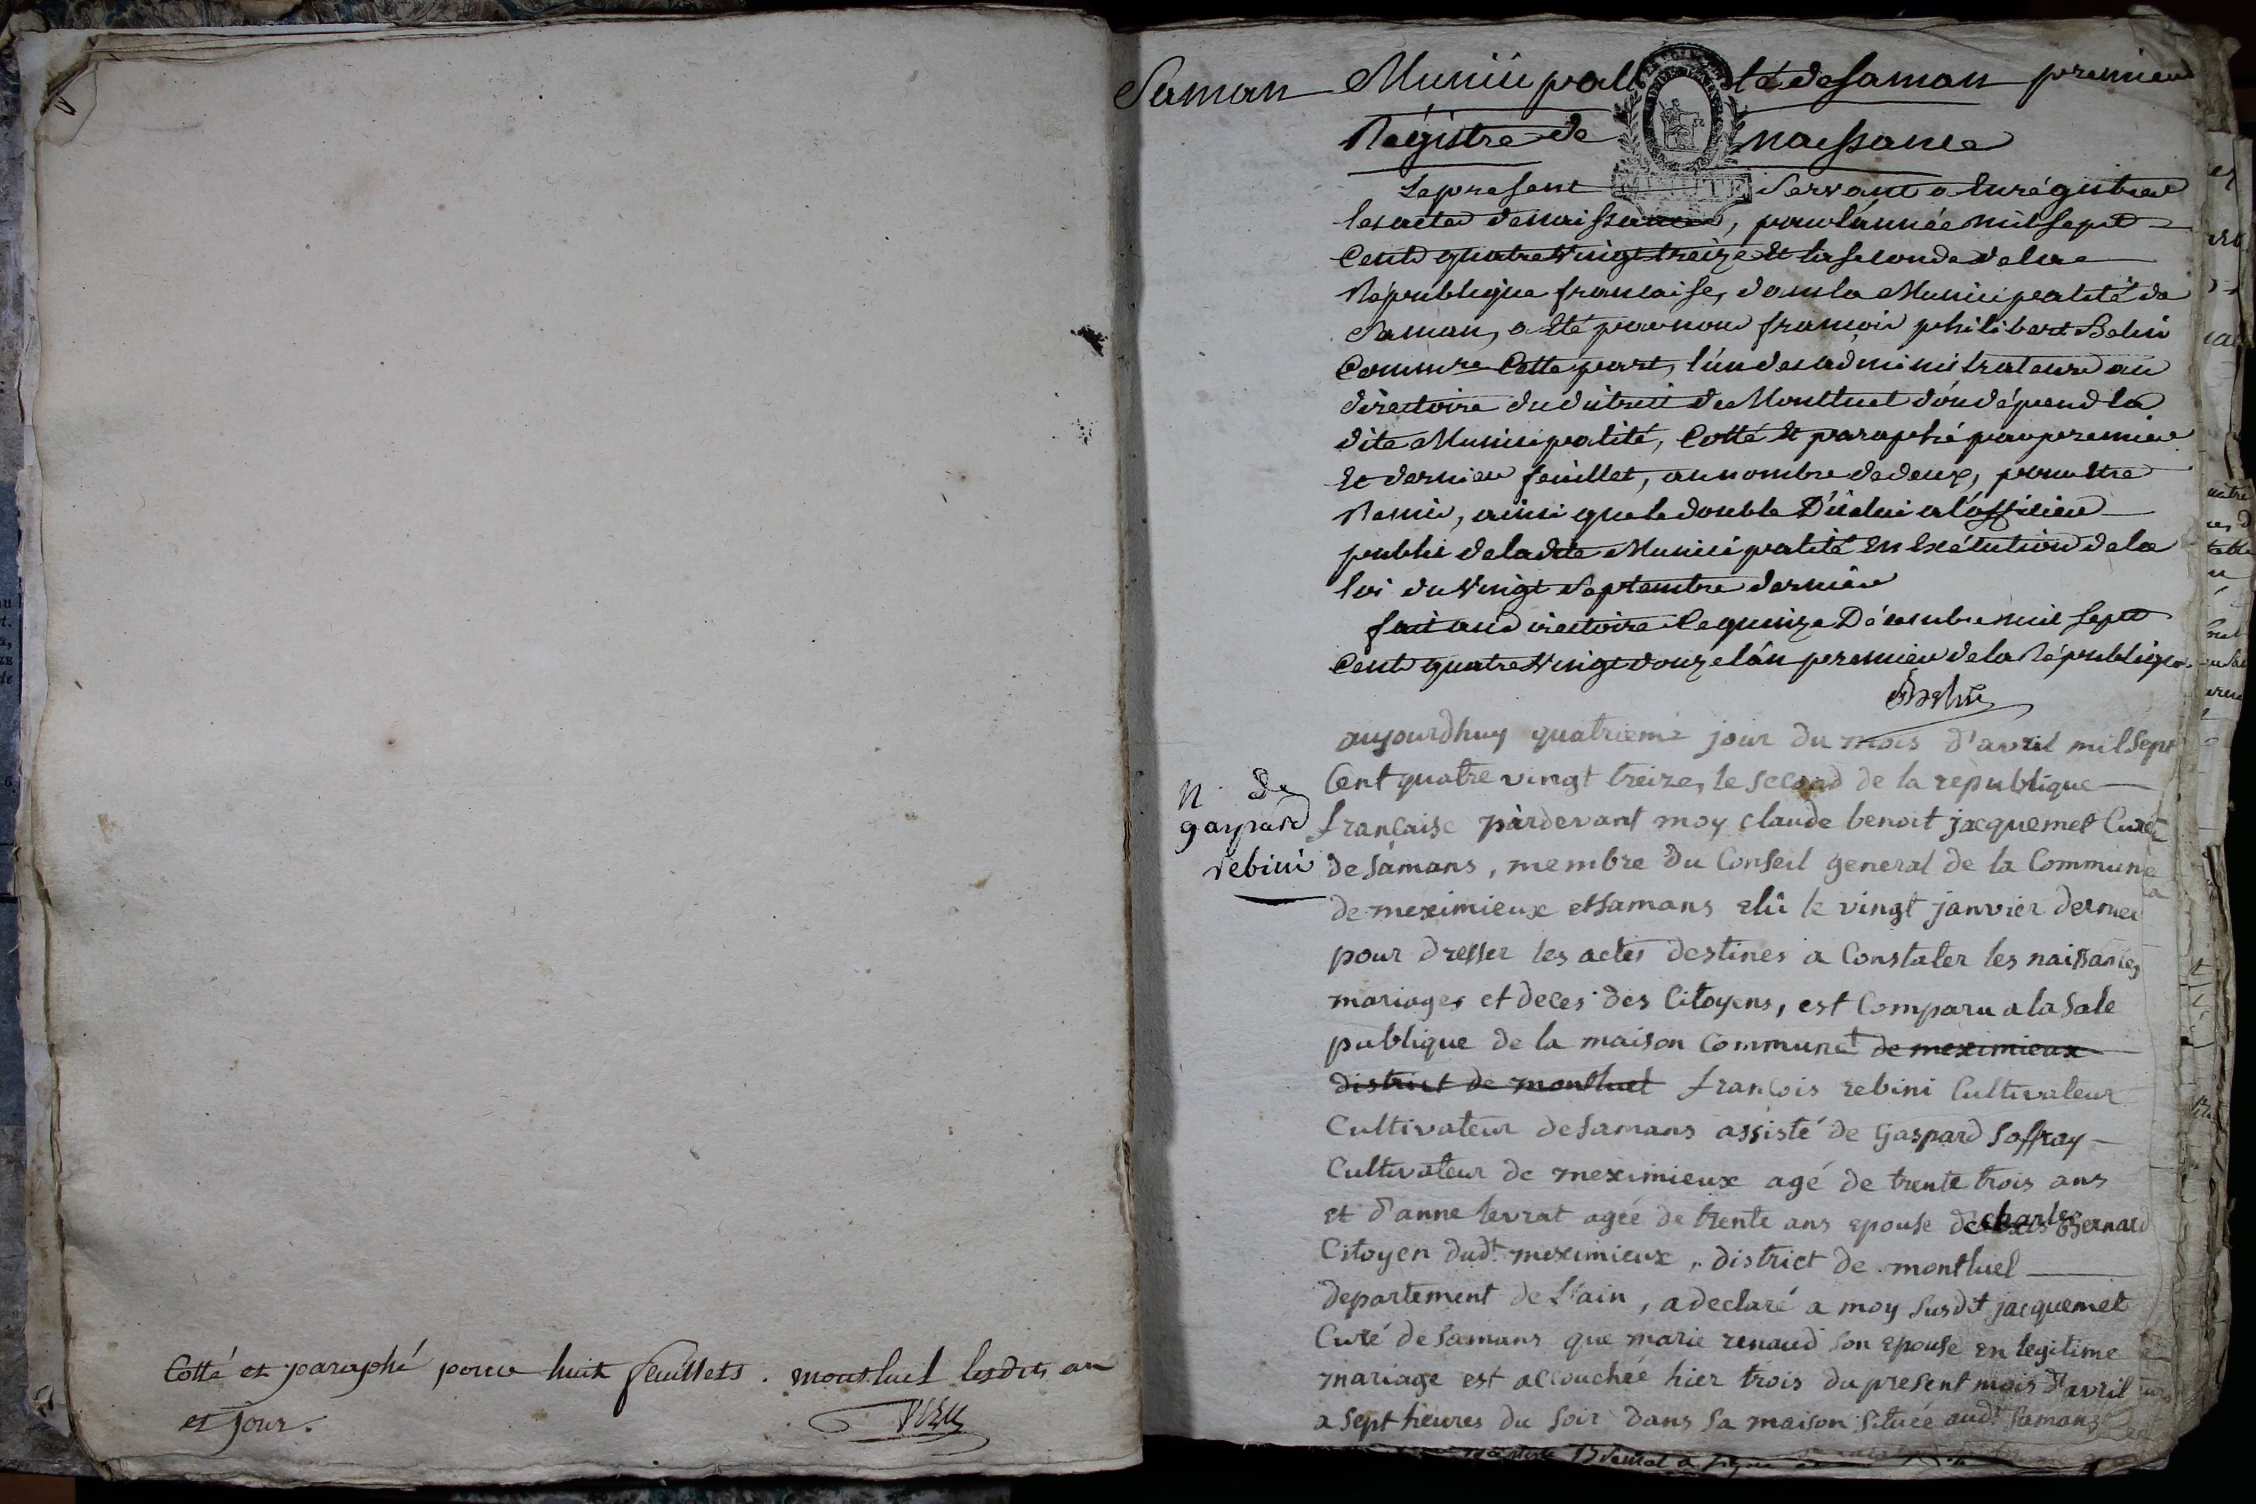 Cotté et paraphé pour huit feuillets. montluel lesdits an
et jour.
Saman Municipalité de Saman premier
Régistre de naissance
MINUTE
Le present servant a Enrégistrer
les actes de naissances, pour l'année mil sept
Cent quatre Vingt treize Et la seconde de la
République francaise, dans la Municipalité de
Saman, a Eté par nous francois philibert Belin
Commre Cette part, l'un des administrateurs au
directoire du district de Montluel d'ou dépend la
dite Municipalité, Cotté Et paraphé par premier
Et dernier feuillet, au nombre de deux, pour Etre
Remis, ainsi que le double D'icelui a l'officier
public de ladite Municipalité En Exécution de la
loi du Vingt Septembre dernier
fait au directoire le quinze Décembre mil sept
Cent quatre Vingt douze l'an premier de la République
Belin
aujourdhuy quatrieme jour du mois d'avril mil sept
Cent quatre vingt treize, le second de la republique
N. de
gaspard
rebini
française pardevant moy claude benoit jacquemet Curé
de Samans, membre du Conseil general de la Commune
de meximieux et Samans elû le vingt janvier dernier
pour dresser les actes destines a Constater les naissances
mariages et deces des Citoyens, est Comparu a la Sale
publique de la maison Commune de meximieux
district de montluel françois rebini Cultivateur
Cultivateur de Samans assisté de Gaspard Soffray
Cultivateur de meximieux agé de trente trois ans
et d'anne levrat ageé de trente ans epouse de charles Bernard
Citoyen dudt meximieux, district de montluel
departement de L'ain, a declaré a moy Susdit jacquemet
Curé de Samans que marie renaud Son epouse en legitime
mariage est accouchée hier trois du present mois d'avril
a Sept heures du Soir dans Sa maison Située audt Samans